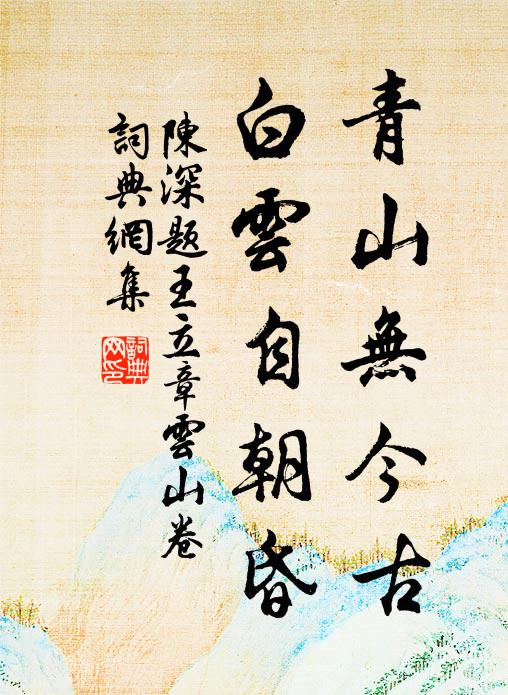 青山無今古
白雲自朝昏
陳深題王立章雲山卷
詞典網集
詞典網印